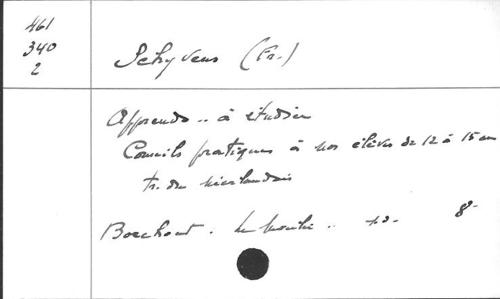 461
340
2
Schyvens (Fr.)
Apprends.. à étudier
Conseils pratiques à nos élèves de 12 à 15 ans
tr. du néerlandais
Boechout. 8-